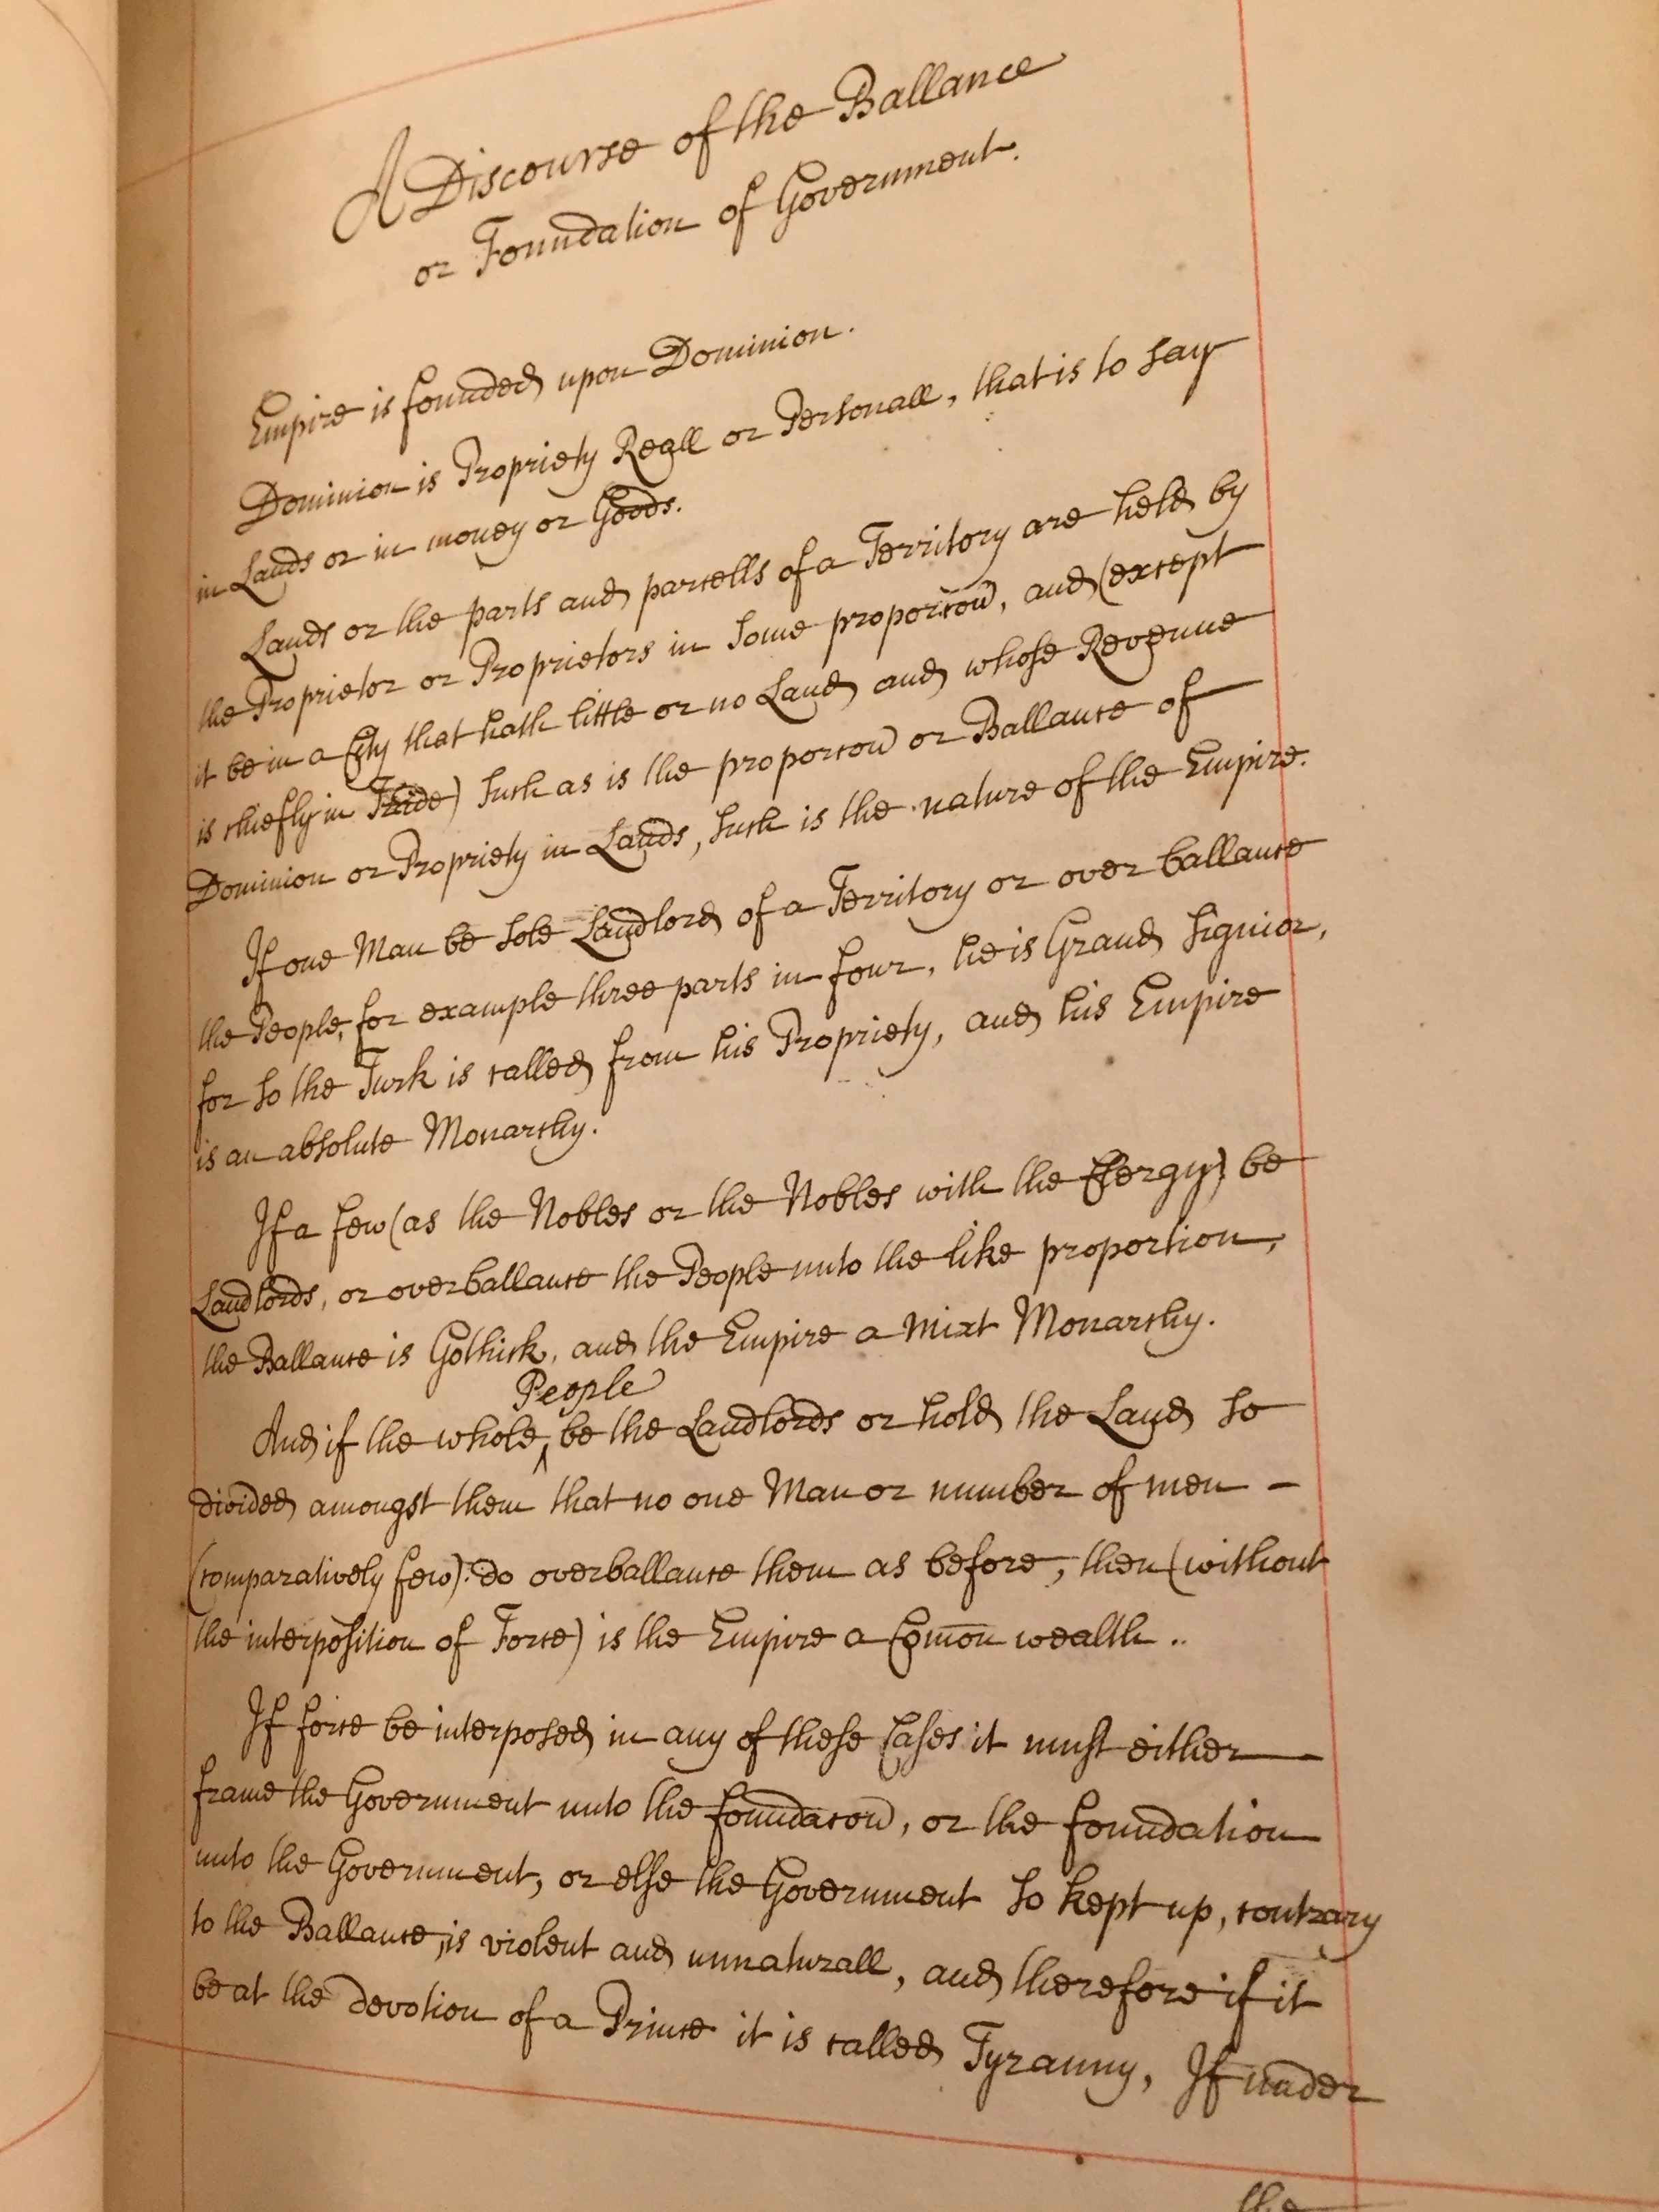 A Discourse of the Ballance
or Foundation of Government.
Empire is founded upon Dominion.
Dominion is Propriety Reall or Personall, that is to say
in Lands or in money or Goods.
Lands or the parts and parcells of a Territory are held by
the Proprietor or Proprietors in some proporcon, and (except
it be in a City that hath little or no Land and whose Revenue
is chiefly in Trade) such as is the proporcon or Ballance of
Dominion or Propriety in Lands, such is the nature of the Empire.
If one Man be sole Landlord of a Territory or over ballance
the People, for example three parts in four, he is Grand Signior,
for so the Turk is called from his Propriety, and his Empire
is an absolute Monarchy.
If a few (as the Nobles or the Nobles with the Clergy) be
Landlords, or overballance the People unto the like proportion,
the Ballance is Gothick, and the Empire a mixt Monarchy.
People
And if the whole ^ be the Landlords or hold the Land so
divided amongst them that no one Man or number of men –
(comparatively few) do overballance them as before, then (without
the interposition of Force) is the Empire a Com̅on wealth..
If force be interposed in any of these Cases it must either
frame the Government unto the foundacon, or the foundation
unto the Government, or else the Government so kept up, contrary
to the Ballance, is violent and unnaturall, and therefore if it
be at the devotion of a Prince it is called Tyranny, If under
the